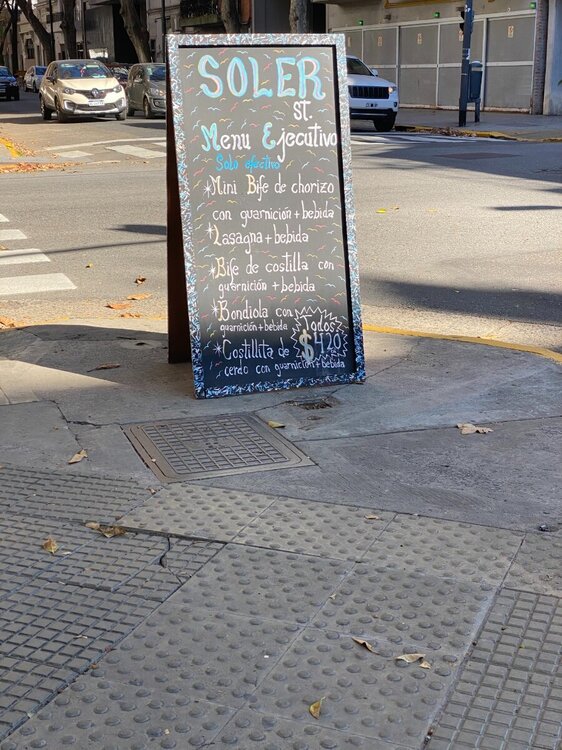 SOLER
ST.
Menu Ejecutivo
Solo efectivo
*Mini Bife de chorizo
con guarnición + bebida
*Lasagna + bebida
*Bife de costilla con
guarnición + bebida
*Bondiola con
guarnición + bebida
Todos
$420
*Costillita de
cerdo con guarnición + bebida